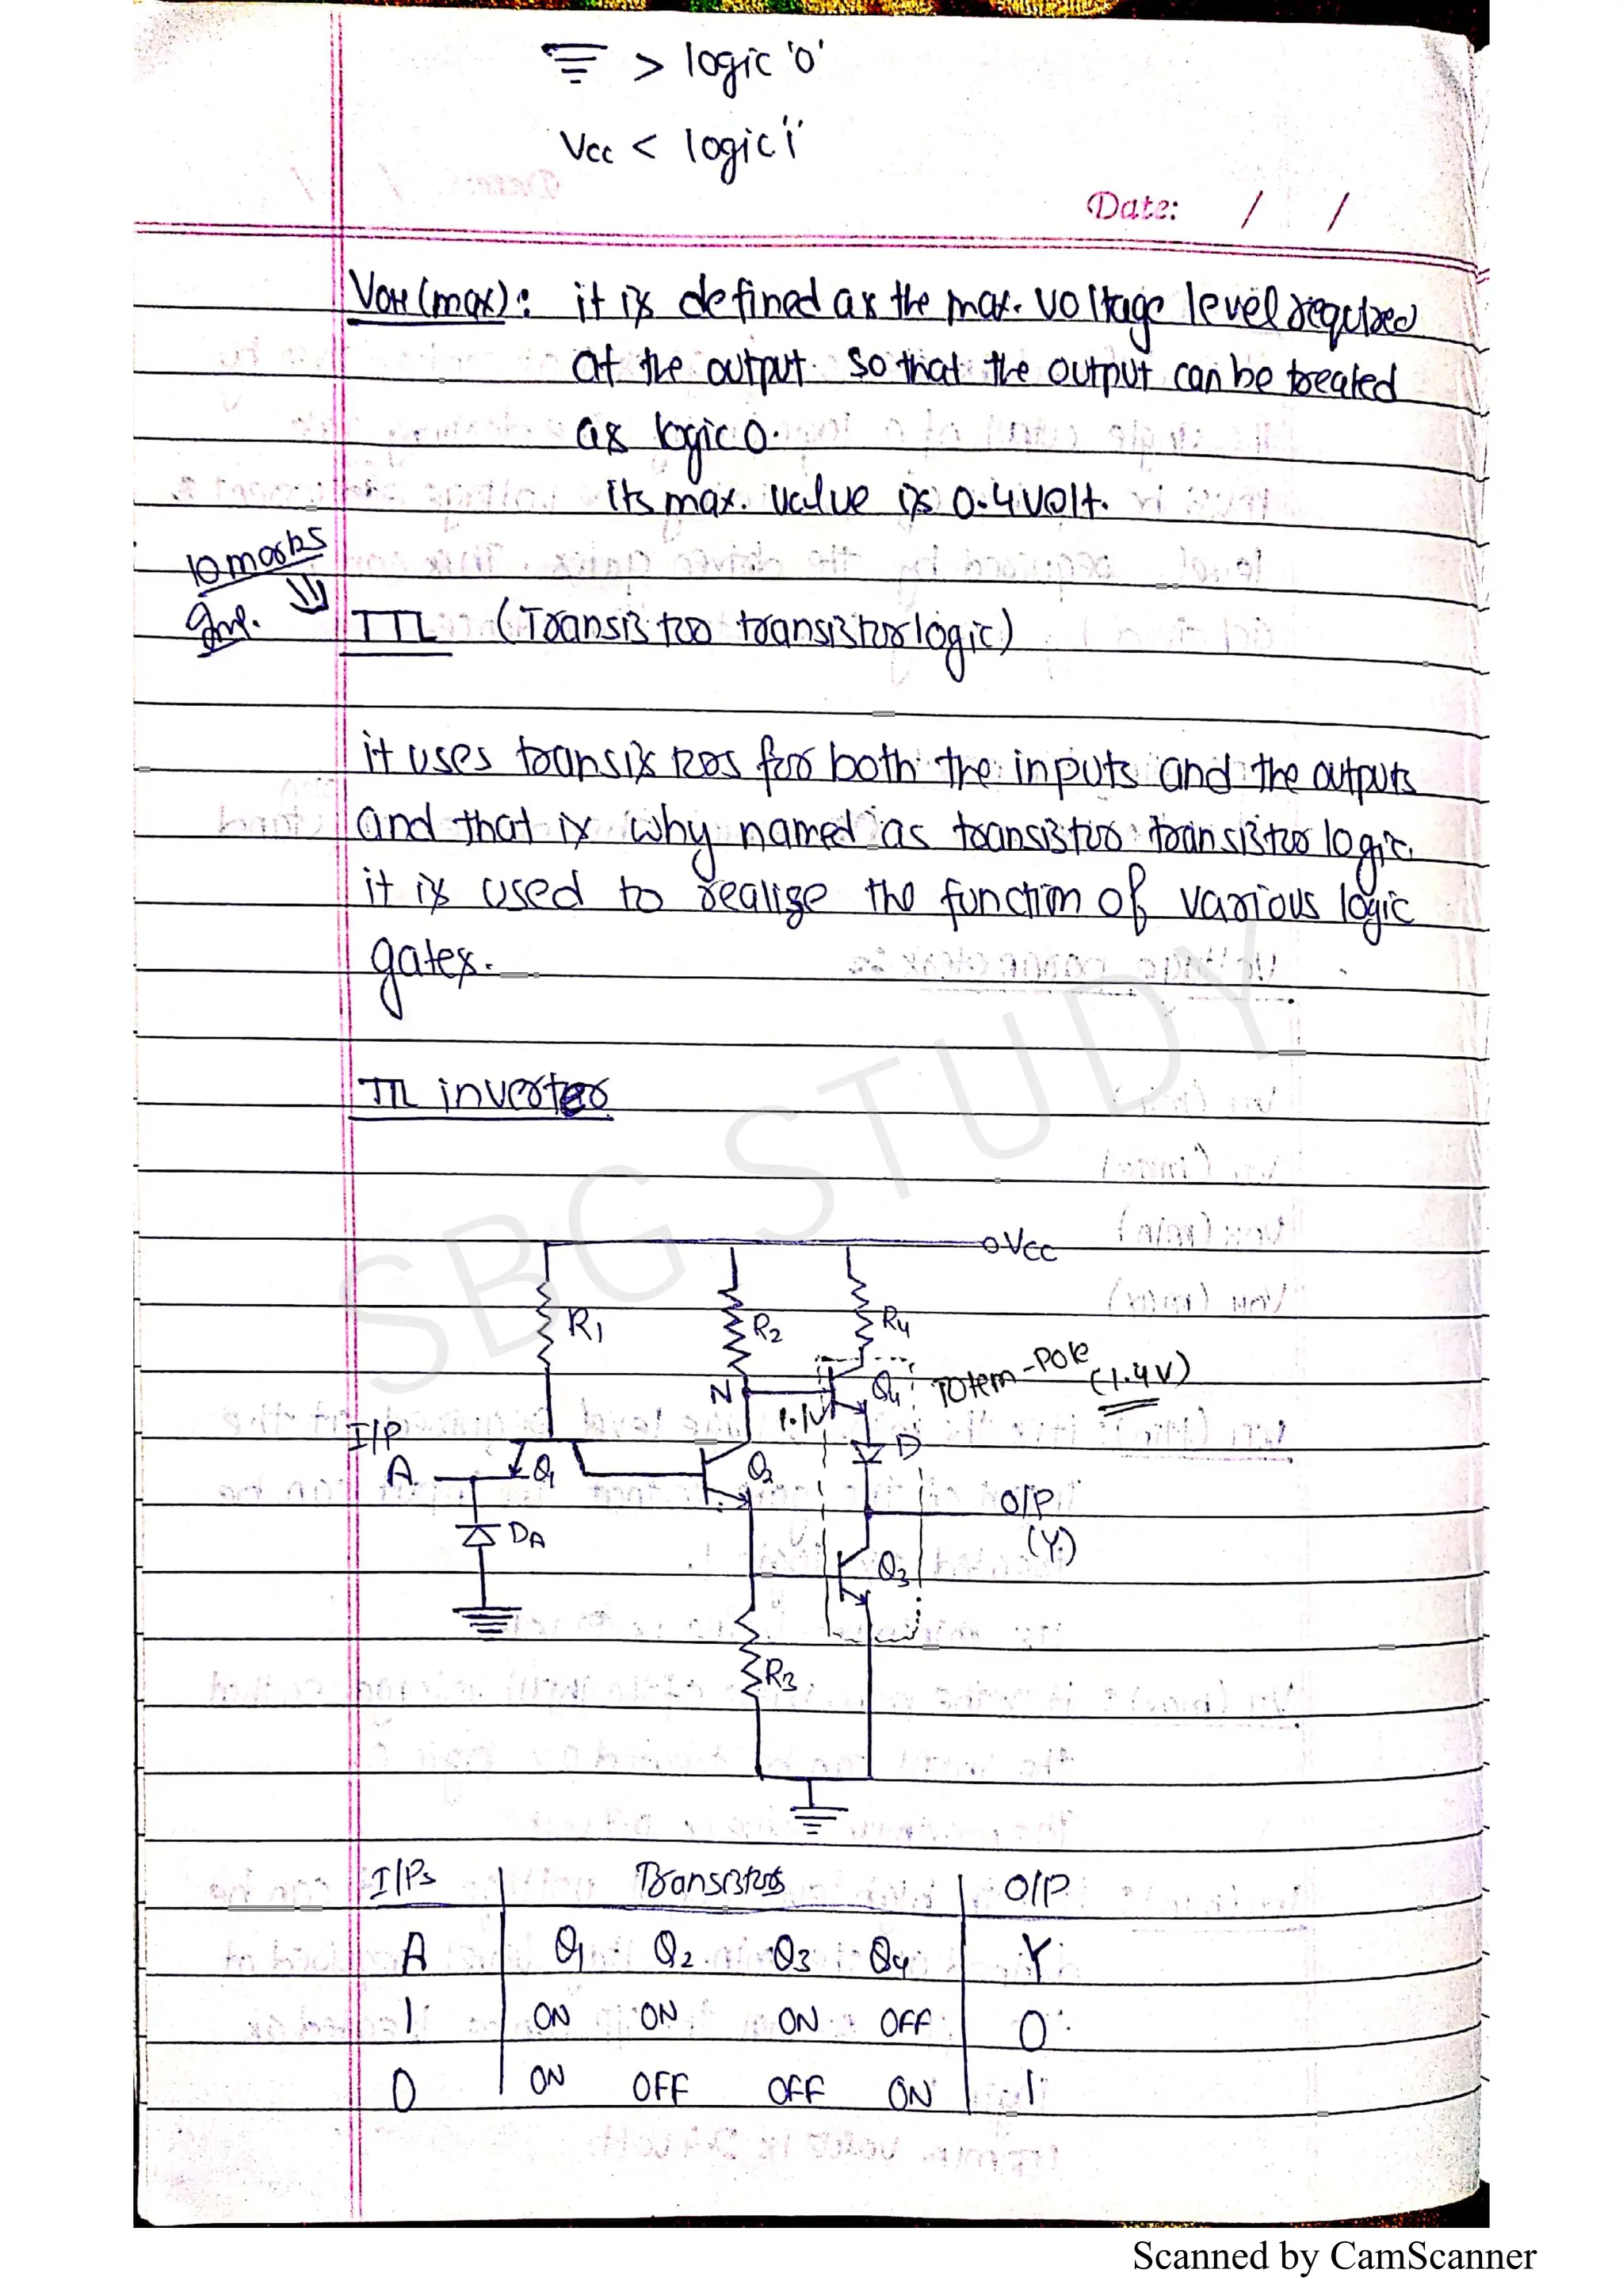 > logic '0'
Vcc < logic '1'
Date: / /
VOH (max): it is defined as the max. voltage level required
at the output so that the output can be treated
as logic 0.
its max. value is 0.4 volt.
10 marks
Imp.
TTL (Transistor transistor logic)
it uses transistors for both the inputs and the outputs
and that is why named as transistor transistor logic.
it is used to realize the function of various logic
gates.
TTL inverter
Vcc
R1 R2 R4
N Q4 Totem-Pole (1.4V)
1.1V
I/P D
A Q1 Q2
O/P
DA (Y)
Q3
R3
I/Ps Transistors O/P
A Q1 Q2 Q3 Q4 Y
1 ON ON ON OFF 0
0 ON OFF OFF ON 1
SBG STUDY
Scanned by CamScanner